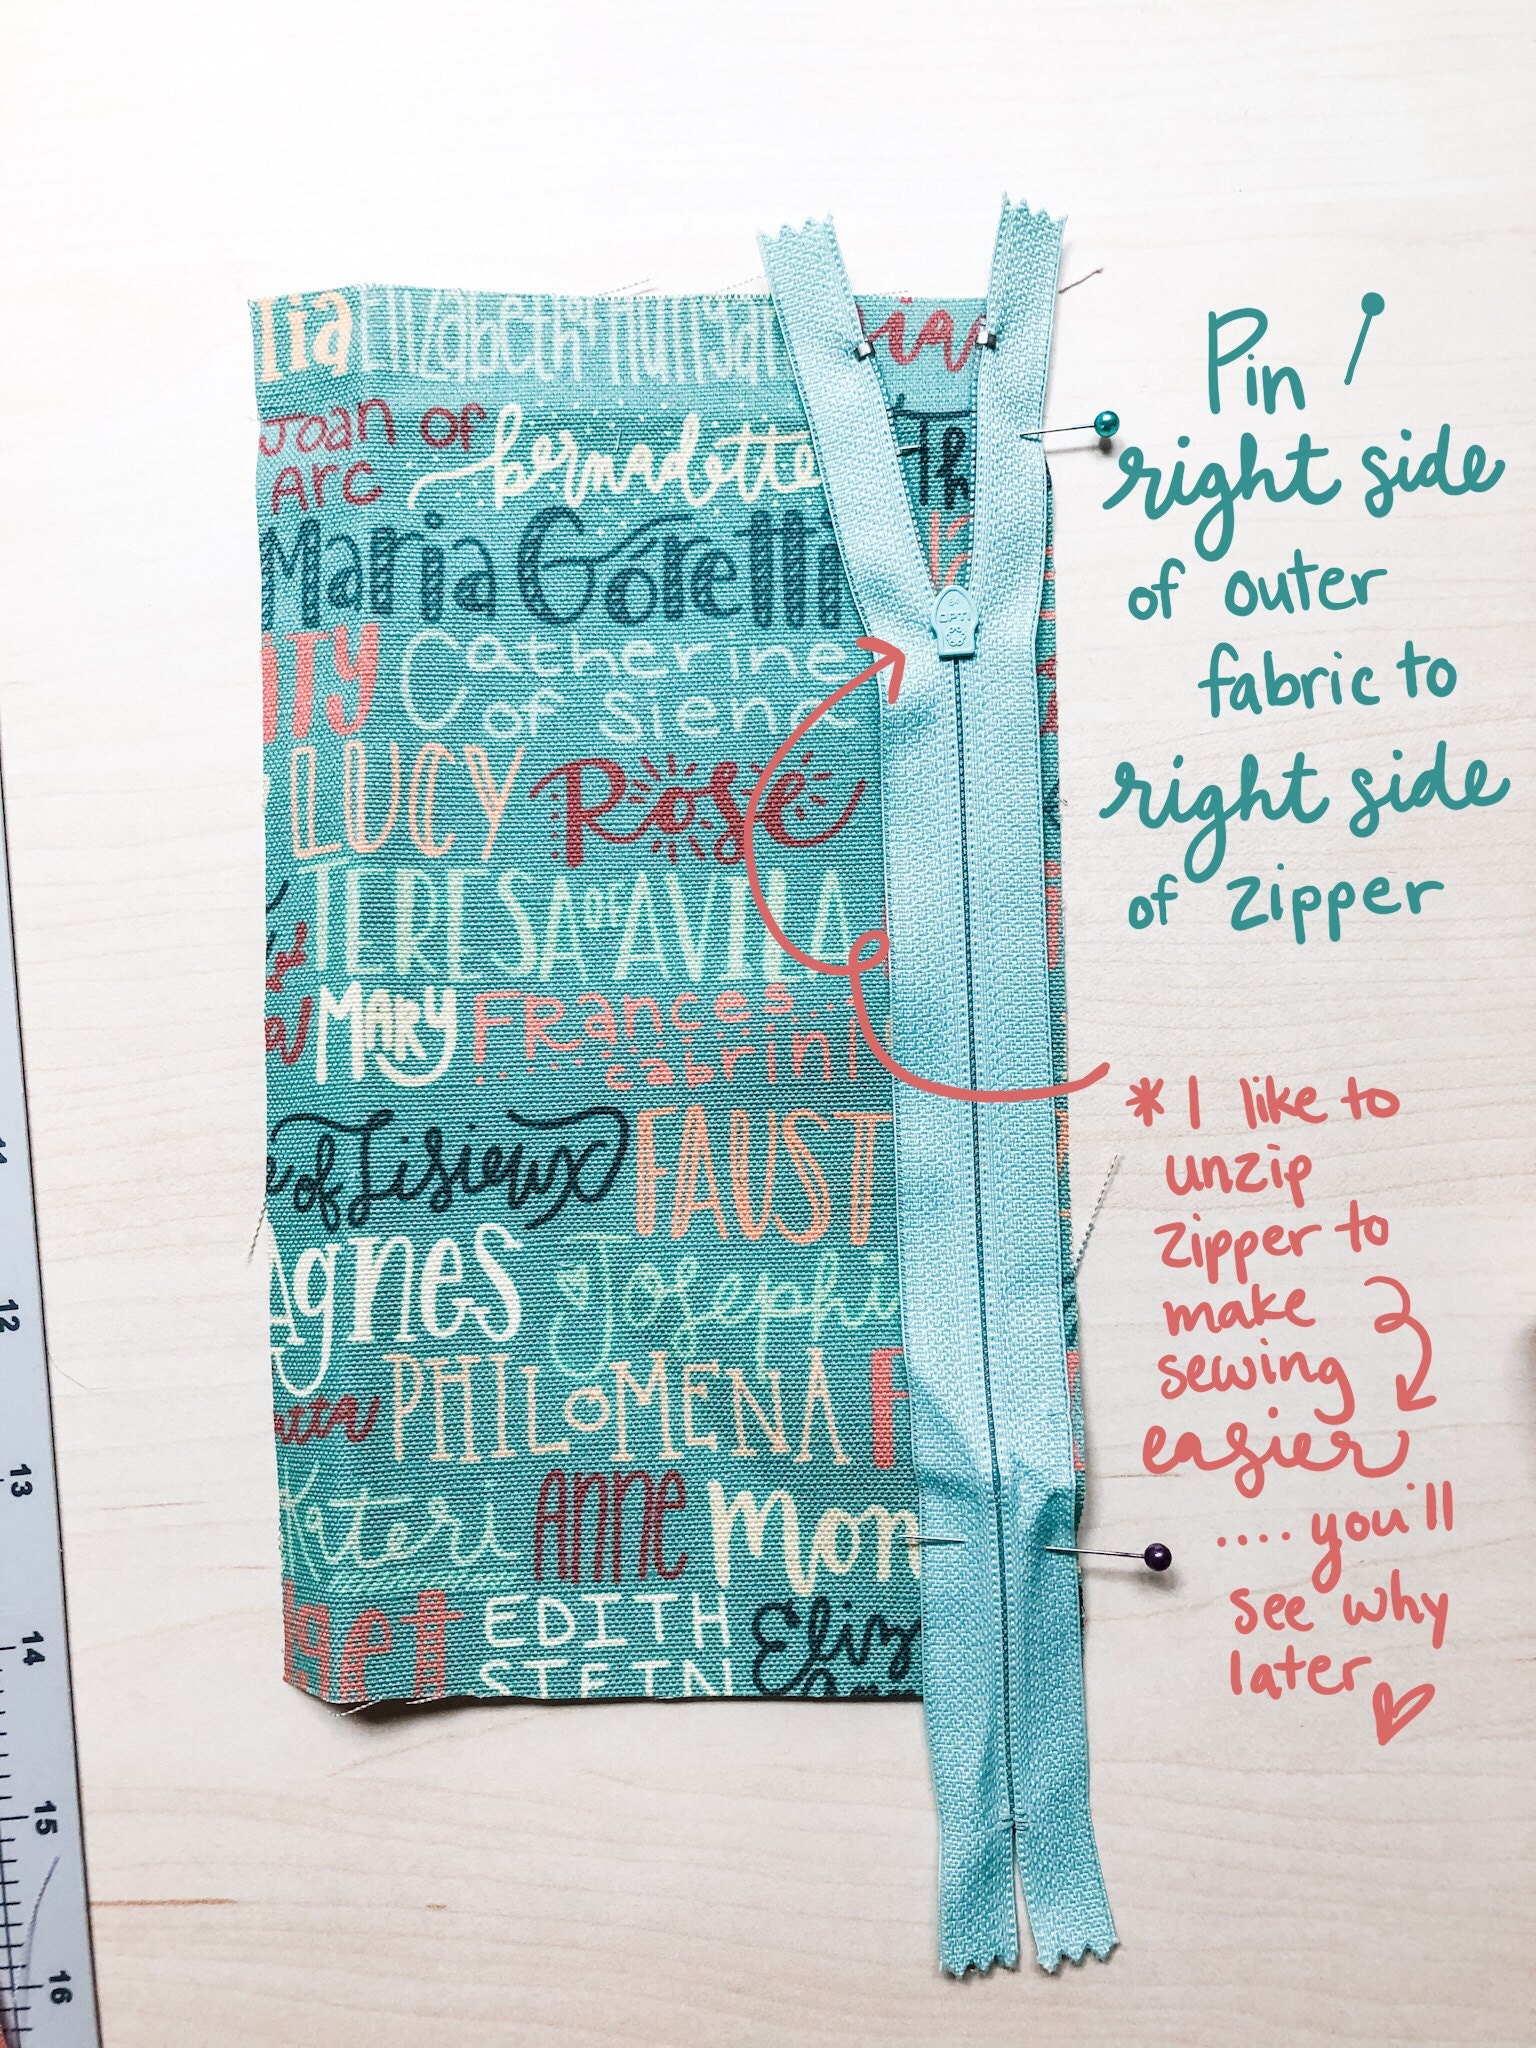 lia Elizabeth of Hungar
Joan of
Arc
bernadette
Th
Maria Goretti
ITY Catherine
of Siena
LUCY Rose
TERESA OF AVILA
MARY Frances
cabrini
e of Lisieux FAUST
Agnes Josephi
PHILOMENA F
Kateri Anne Mon
get EDITH
STEIN
Eliz
Ann
Pin
right side
of outer
fabric to
right side
of zipper
* I like to
unzip
zipper to
make
sewing
easier
.... you'll
see why
later
11
12
13
14
15
16